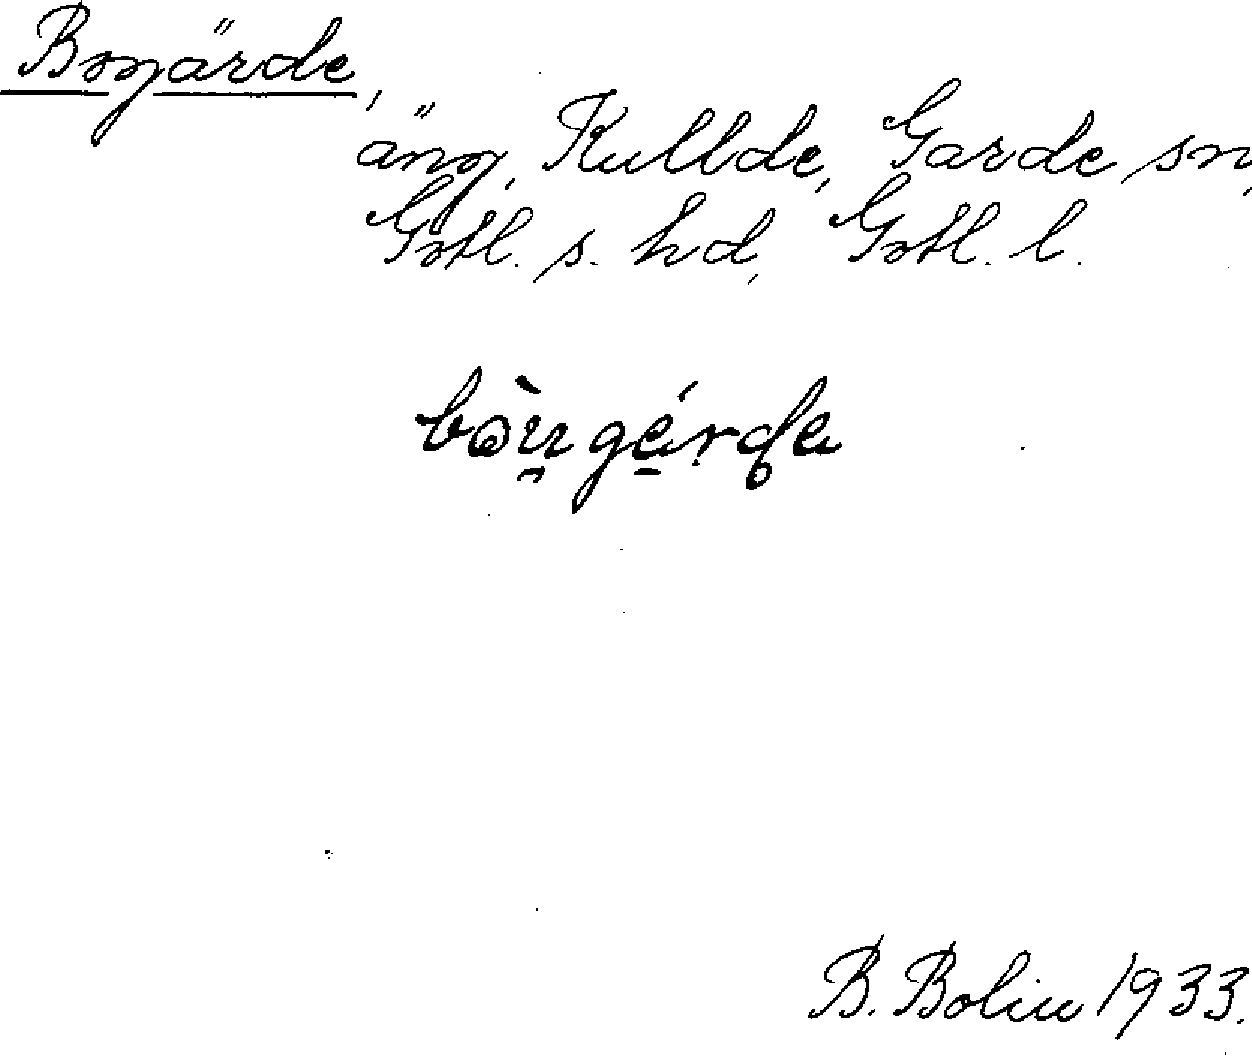 Bogärde,
äng, Kullde, Garde sn,
Gotl. s. hd, Gotl. l.
B. Bolin 1933.